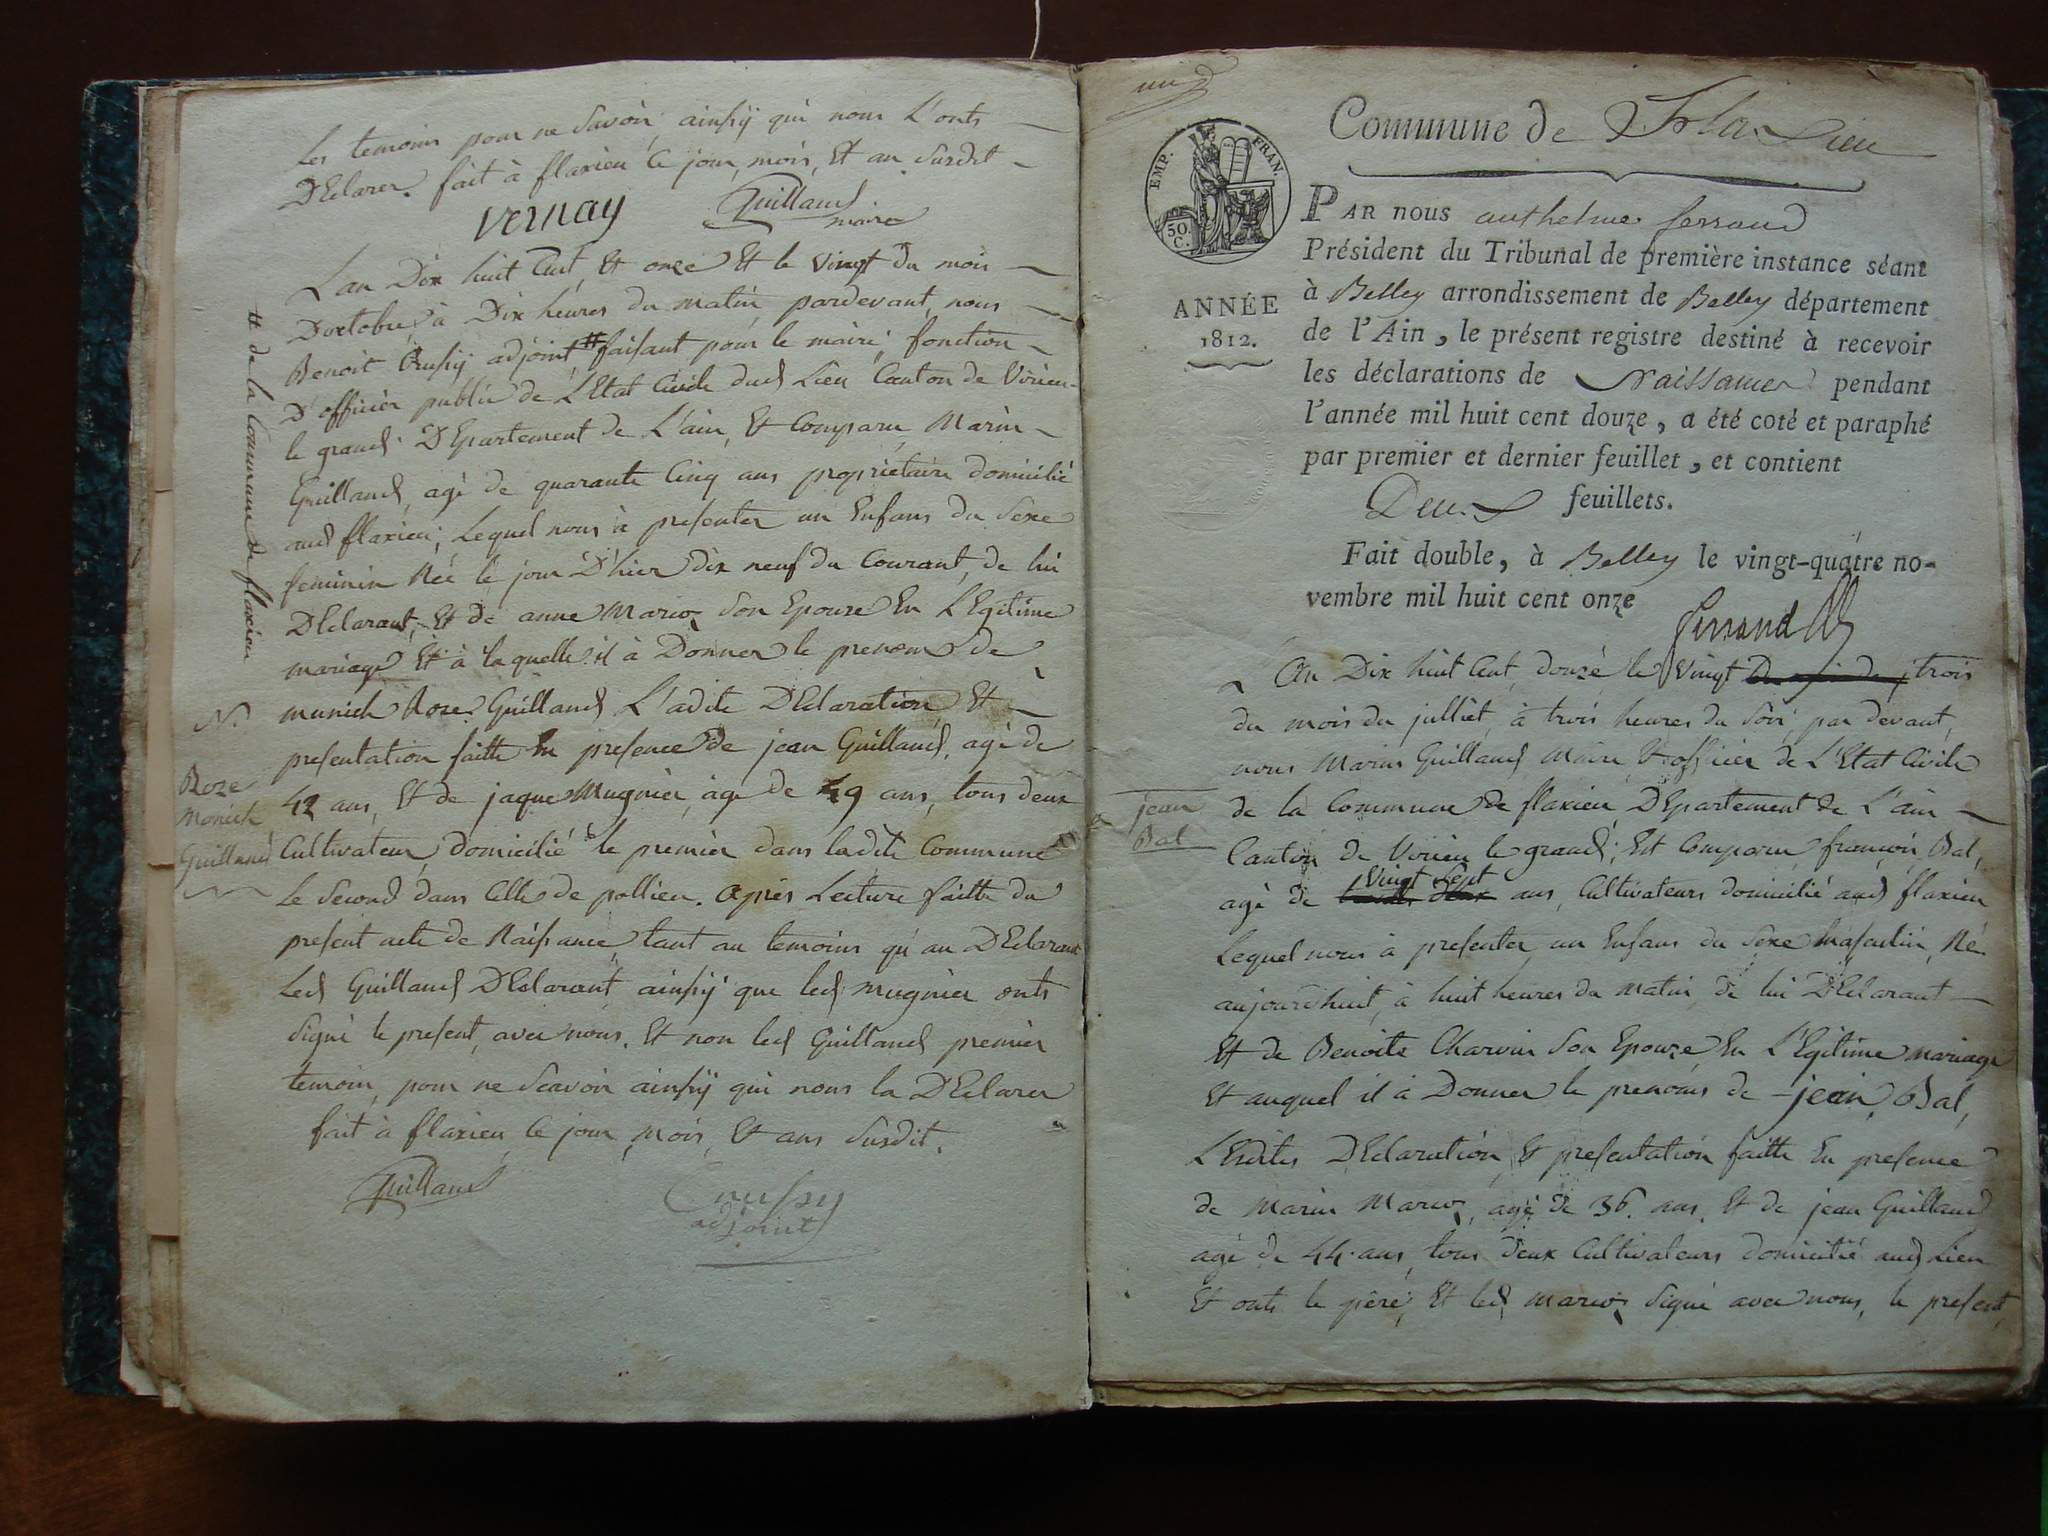 Les temoins pour ne savoir, ainsÿ qui nous L'onts
DEclarer. fait à flaxieu le jour, mois, Et an susdit
vernay Guilland
maire
L'an Dix huit Cent Et onze Et le vingt du mois
Doctobre, à Dix heures du matin, pardevant, nous
Benoit Crussÿ adjoint # faisant pour le maire, fonction
D'officier public de L'Etat Civile dud Lieu Canton de Virieu
le grand DEpartement de L'ain, Et Comparu Marin
Guilland, agé de quarante Cinq ans propriétaire domicilié
aud flaxieu; Lequel nous à presenter un Enfans du Sexe
feminin Née le jour D'hier dix neuf du Courant, de lui
DEclarant, Et de anne Marcoz son Epouse En L'Egitime
mariage Et à laquelle il à Donner le prenom de
munich Roze Guilland L'adite DEclaration Et
presentation faitte En presence de jean Guilland, agé de
42 ans, Et de jaque Mugnier, âgé de 49 ans, tous deux
Cultivateur, domicilié le premier dans ladite Commune
Le Second dans Celle de pollieu. Après Lecture faitte du
present acte de Naissance, tant au temoins qu'au DEclarant
Led Guilland DEclarant ainsÿ que led mugnier onts
signé le present, avec nous. Et non led Guilland premier
temoin, pour ne Scavoir ainsÿ qui nous la DEclarer
fait à flaxieu, le jour, mois, Et ans Susdit.
Guilland Crussy
adjoint
# de la Commune de flaxieu
N.
Roze
Monick
Guilland
EMP. FRAN.
50. C.
ANNÉE
1812.
Commune de Flaxieu
PAR nous anthelme ferrand
Président du Tribunal de première instance séant
à Belley arrondissement de Belley département
de l'Ain, le présent registre destiné à recevoir
les déclarations de Naissances pendant
l'année mil huit cent douze, a été coté et paraphé
par premier et dernier feuillet, et contient
Deux feuillets.
Fait double, à Belley le vingt-quatre no-
vembre mil huit cent onze
ferrand
jean
Bal
An Dix huit Cent, douzé le Vingt trois
du mois du julliet, à trois heures du soir, par devant,
nous Marin Guilland Maire Et officier de L'Etat Civile
de la Commune de flaxieu DEpartement de L'ain
Canton de Virieu le grand; Est Comparu françois Bal,
Vingt Sept
agé de ans, Cultivateurs domicilié aud flaxieu
Lequel nous à presenter un Enfans du Sexe Masculin, Né
aujourdhuit, à huit heures du Matin, de lui DEclarant
Et de Benoite Charvin son Epouze En L'Egitime mariage
Et auquel il à Donner le prenoms de jean, Bal,
L'Esdites DEclaration, Et presentation faitte En presence
de Marin Marcoz, agé de 36. ans, Et de jean Guilland
agé de 44. ans, tous deux Cultivateurs domicilié aud Lieu
Et onts le pere, Et led marcoz signé avec nous, le present,